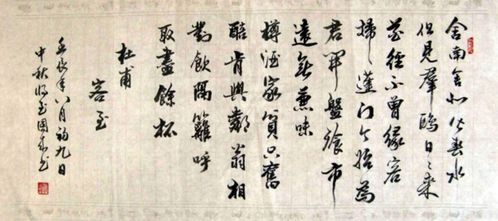 舍南舍北皆春水
但見羣鷗日々來
花徑不曾緣客
掃蓬門今始為
君開盤飧市
遠無兼味
樽酒家貧只舊
醅肯與鄰翁相
對飲隔籬呼
取盡餘杯
杜甫
客至
壬辰年八月初九日
中秋 書